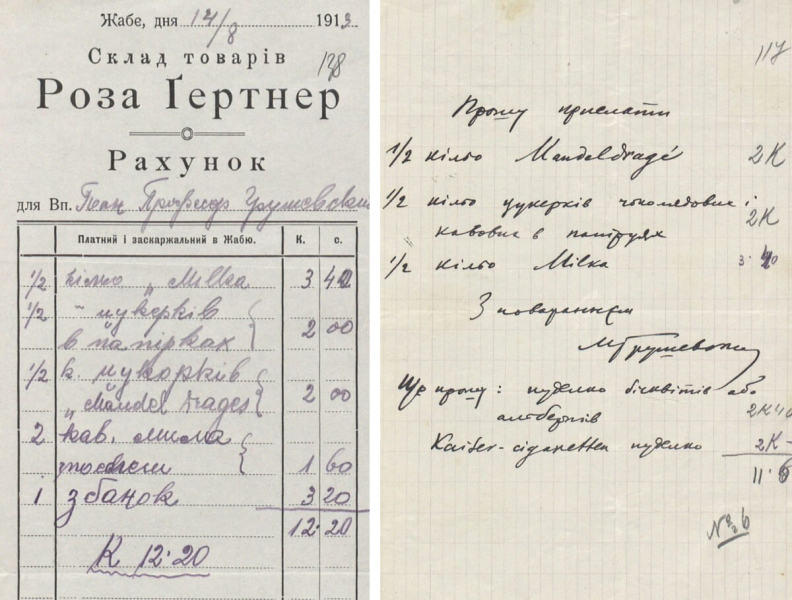 Жабе, дня 14/8 1913.
Склад товарів
138
Роза Ґертнер
Рахунок
для Вп. Пан Професор Грушевский
Платний і заскаржальний в Жабю. К. с.
1/2 кільо „Milka 3 40
1/2 " цукерків
в папірках 2 00
1/2 к. цукорків
„Mandel drages 2 00
2 кав. мила
1 60
1 збанок 3 20
12·20
К 12·20
117
Прошу прислати
1/2 кільо Mandeldragé 2 К
1/2 кільо цукерків чоколядових і
кавових в папірцях 2 К
1/2 кільо Milka 3·40
З поважанням
МГрушевський
Ще прошу: пуделко бісквітів або
альбертів 2К40
Kaiser-cigaretten пуделко 2К-
№ 6